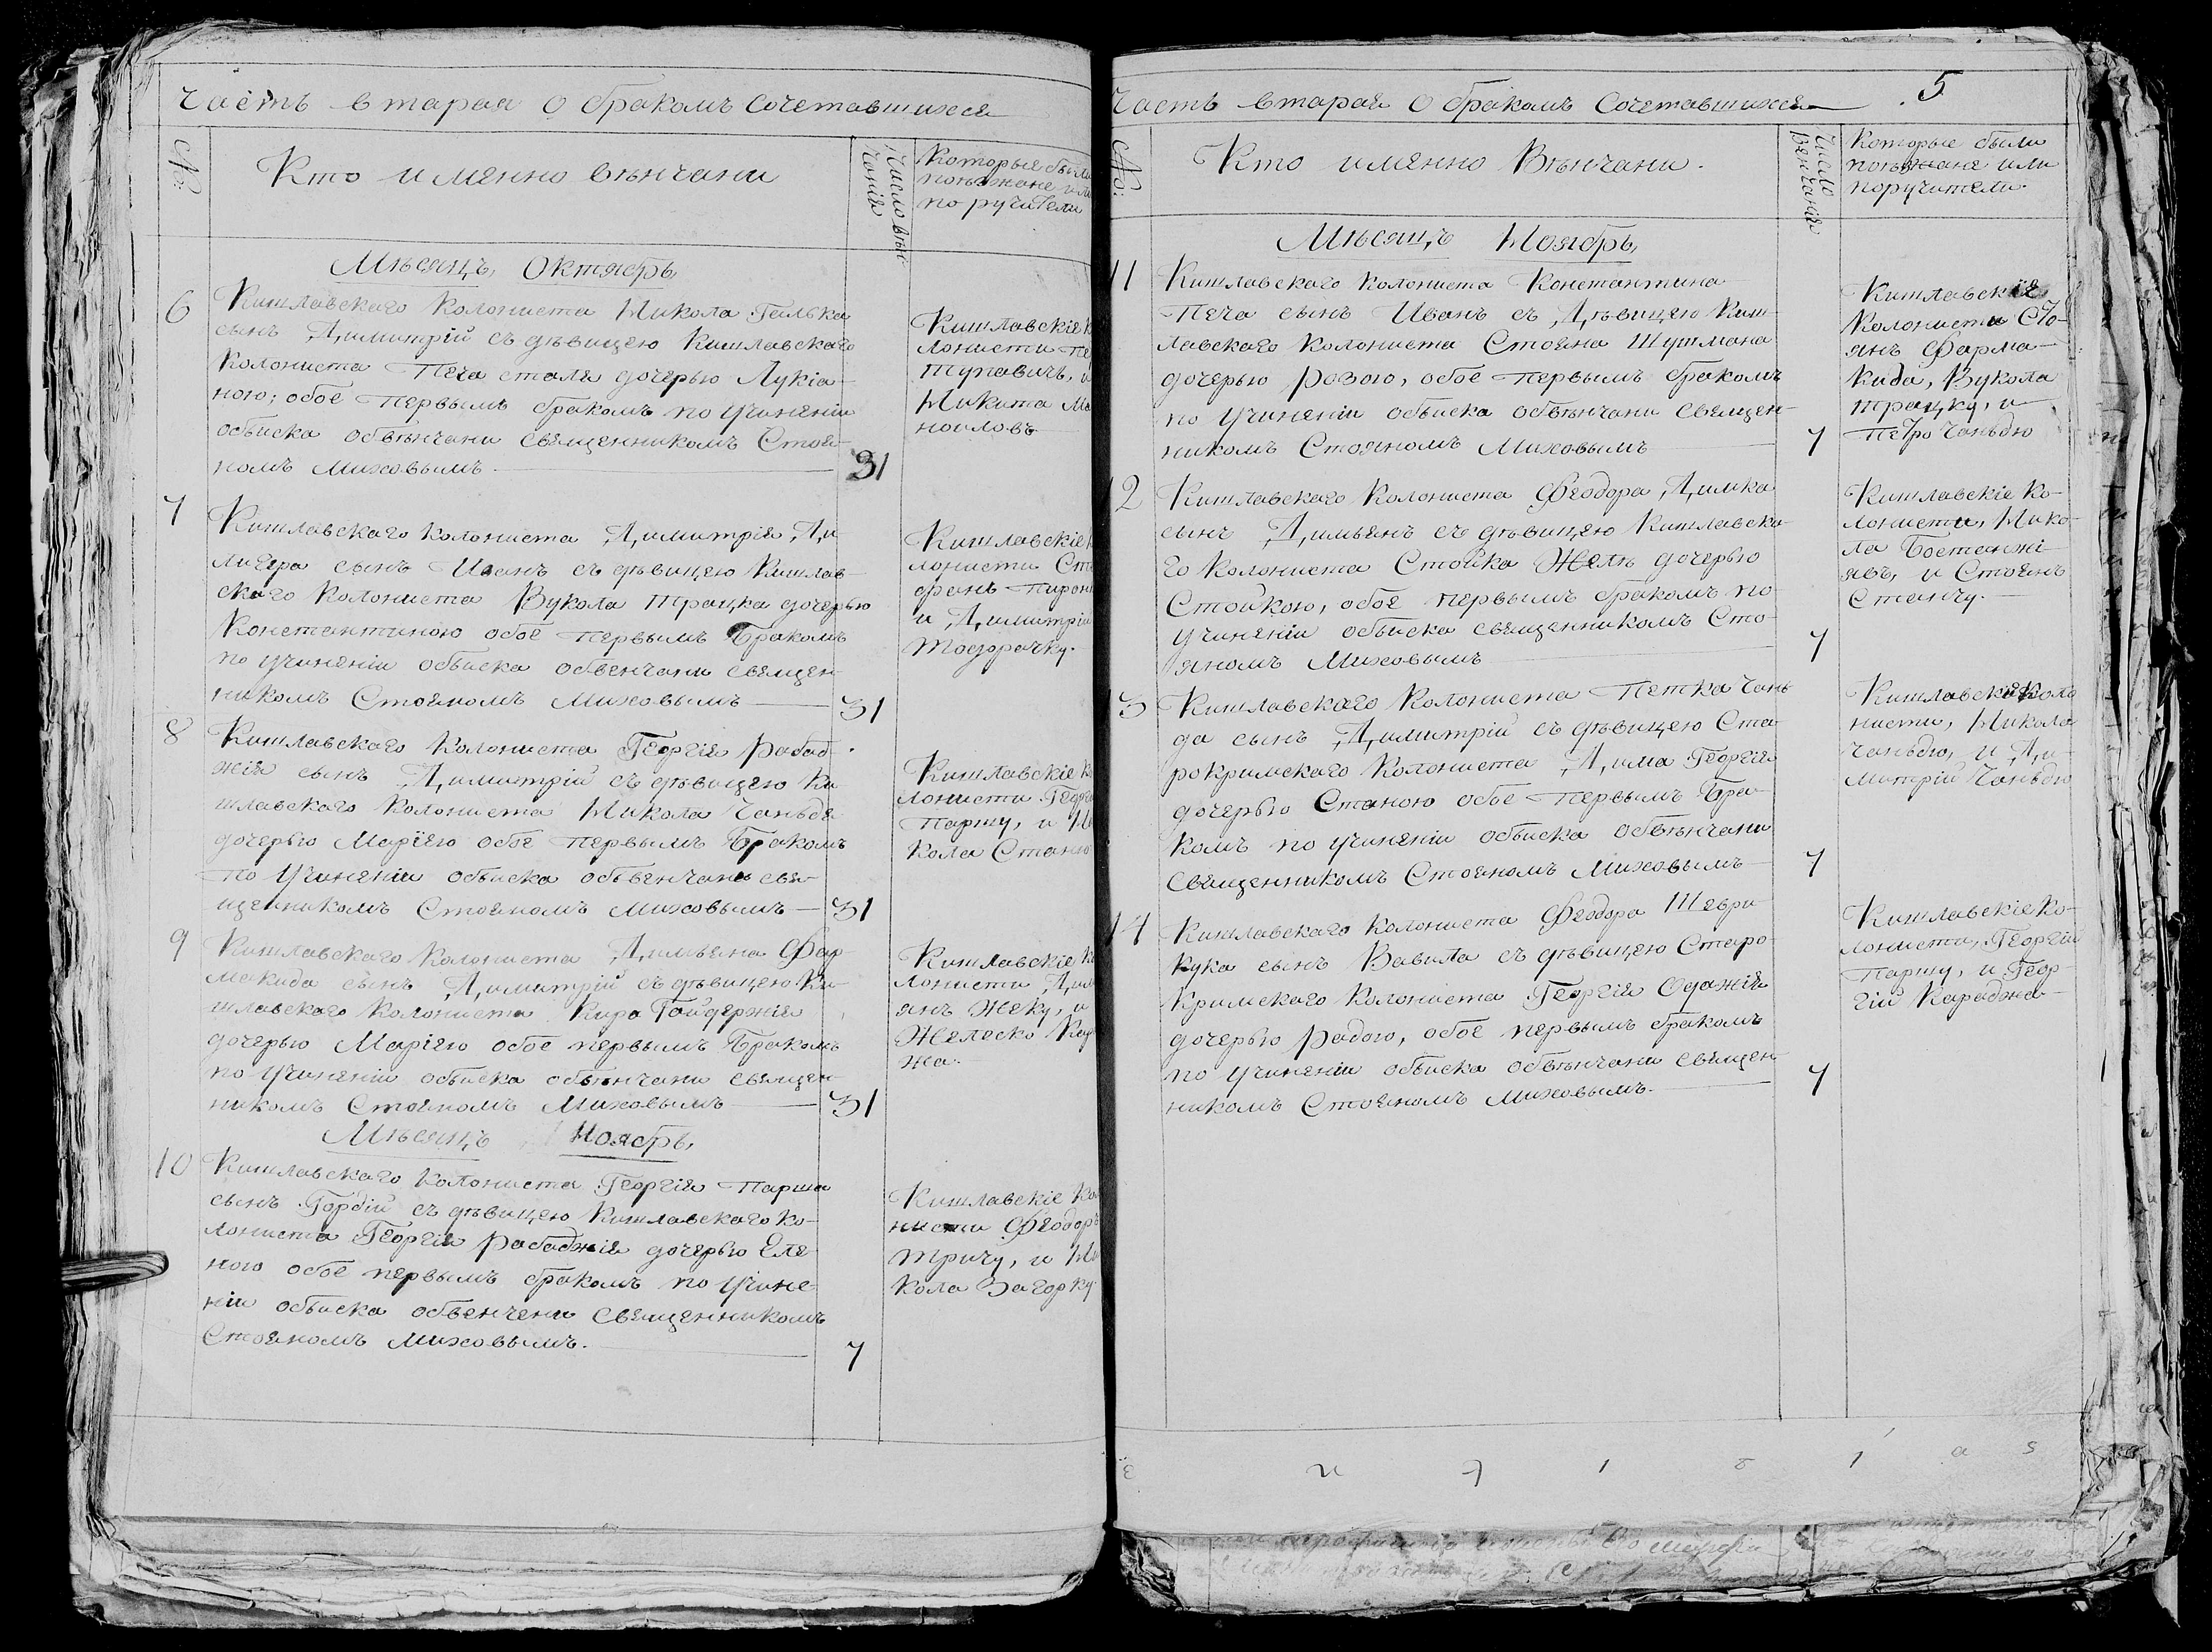 Часть втарая о бракомъ сочетавшихся
№:
Кто имянно внчани
Число внчанія
Которые были
поѣзжане или
поручители
Мѣсяцъ, Октябрь,
6
Кишлавскаго Колониста Никола Гелька
сынъ Димитрій съ дѣвицею Кишлавскаго
Колониста Печа сталя дочерью Лукіа-
ною; обое первымъ бракомъ по учиненіи
обыска обвѣнчани священникомъ Стоя-
номъ Миховымъ
31
Кишлавскіе
лонисти
тупавичъ,
Никита
ноиловъ
7
Кишлавскаго Колониста Димитрія Ди-
лигера сынъ Иванъ съ дѣвицею Кишлав-
скаго Колониста Вукола Трацка дочерью
Константиною обое первымъ Бракомъ
по учиненіи обыска обвенчани священ-
никомъ Стояномъ Миховымъ
31
Кишлавскіе
лонисти
фанъ
и Димитрій
Тодорочку.
8
Кишлавскаго Колониста Георгія Рабад-
жія сынъ Димитрій съ дѣвицею Ки-
шлавскаго Колониста Никола Чаньдя
дочерью Маріею обое первымъ Бракомъ
по Учиненіи обыска обвенчани свя-
щенникомъ Стояномъ Миховымъ
31
Кишлавскіе
лонисти
Паршу, и Ни
кола
9
Кишлавскаго Колониста Димьяна Фар-
макида сынъ Димитрій съ дѣвицею Ки-
шлавскаго Колониста Кира Гайдержія
дочерью Маріею обое первымъ Бракомъ
по Учиненіи обыска обвѣнчани священ
никомъ Стояномъ Миховымъ
31
Кишлавскіе
лонисти
янъ Жеку, и
Желеско
жа.
Мѣсяцъ Ноябрь,
10
Кишлавскаго Колониста Георгія Парша
сынъ Гордій съ дѣвицею Кишлавскаго Ко-
лониста Георгія Рабаджія дочерью Еле-
ною обое первымъ бракомъ по Учине-
ніи обыска обвенчени Священникомъ
Стояномъ Миховымъ.
7
Кишлавскіе
нисти Феодоръ
Тричу, и Ни
кола Загорку
Часть втарая о бракомъ Сочетавшихся
5
№:
Кто имянно Внчани.
Число Венчанія
Которые были
поѣзжане или
поручители.
Мѣсяцъ Ноябрь,
11
Кишлавскаго Колониста Константина
Печа сынъ Иванъ съ Дѣвицею Киш-
лавскаго Колониста Стояна Шушмана
дочерью Розою, обое первымъ бракомъ
по Учиненіи обыска обвѣнчани Священ-
никомъ Стояномъ Миховымъ
7
Кишлавскія
Колонисти Сто-
янъ Фарма-
кида, Вукола
Трацку, и
Петро Чаньдю
12
Кишлавскаго Колониста Феодора Димка
сынъ Димьянъ съ дѣвицею Кишлавска-
го Колониста Стойка Желѣ дочерью
Стойкою, обое первымъ бракомъ по
учиненіи обыска священникомъ Сто-
яномъ Миховымъ
7
Кишлавскіе Ко-
лонисти, Нико-
ла Бостанжі-
явъ, и Стоянъ
Станчу.
13
Кишлавскаго Колониста Петка Чань
да сынъ Димитрій съ дѣвицею Ста-
рокримскаго Колониста Дима Георгія
дочерью Станою обое первымъ Бра-
комъ по учиненіи обыска обвѣнчани
Священникомъ Стояномъ Миховымъ
7
Кишлавскія Коло
нисти, Никола
Чаньдю, и Ди-
митрій Чаньдю
14
Кишлавскаго Колониста Феодора Шеври-
кука сынъ Вавила съ дѣвицею Старо-
кримскаго Колониста Георгія Оджія
дочерью Радою, обое первымъ бракомъ
по Учиненіи обыска обвѣнчани Священ-
никомъ Стояномъ Миховымъ.
7
Кишлавскіе Ко-
лонисти, Георгій
Паршу, и Геор-
гій Караджа